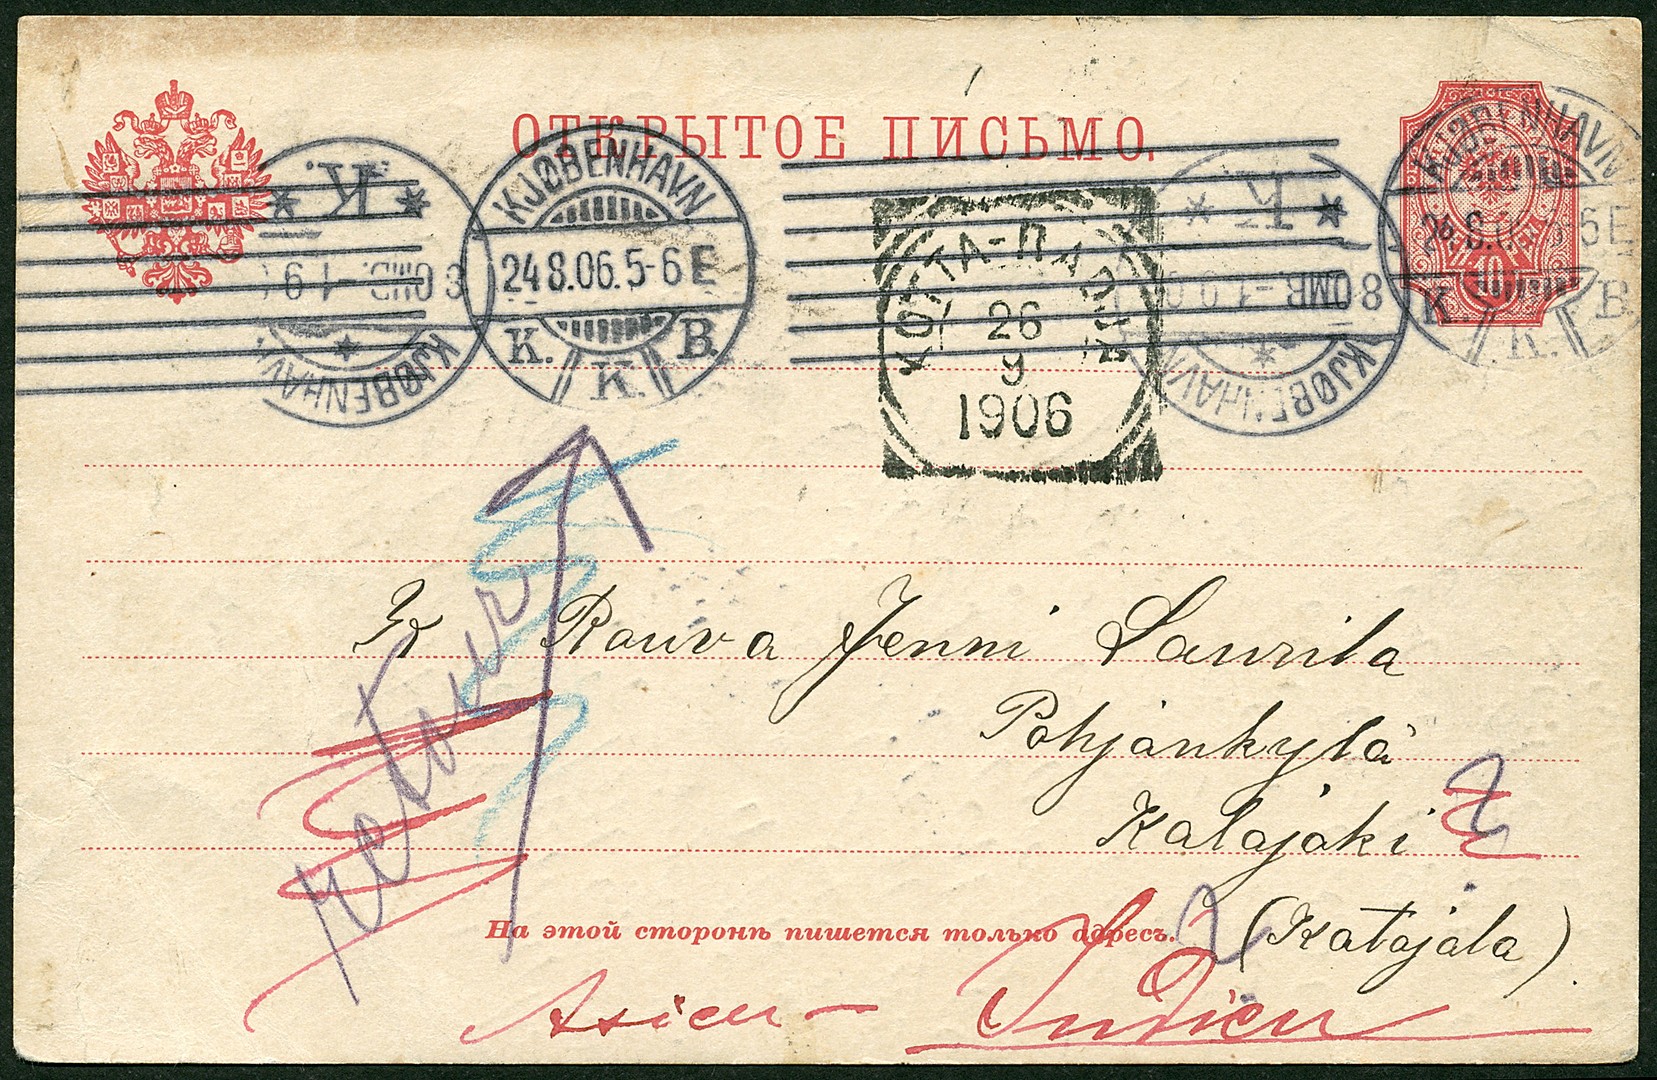 ОТКРЫТОЕ ПИСЬМО.
KJØBENHAVN
24 8.06. 5-6 E
K. K. B.
K.
OMB.-1
KJØBENHAVN.
K.
8 OMB.-1
KJØBENHAVN.
KJØBENHAVN
26.8. 6 E
K. K. B.
10
КОТТА
26
9
1906
retour
Rouva Jenni Saurila
Pohjánkylä
Kalajoki
(Katajala).
На этой сторонѣ пишется только адресъ.
Asien - Indien